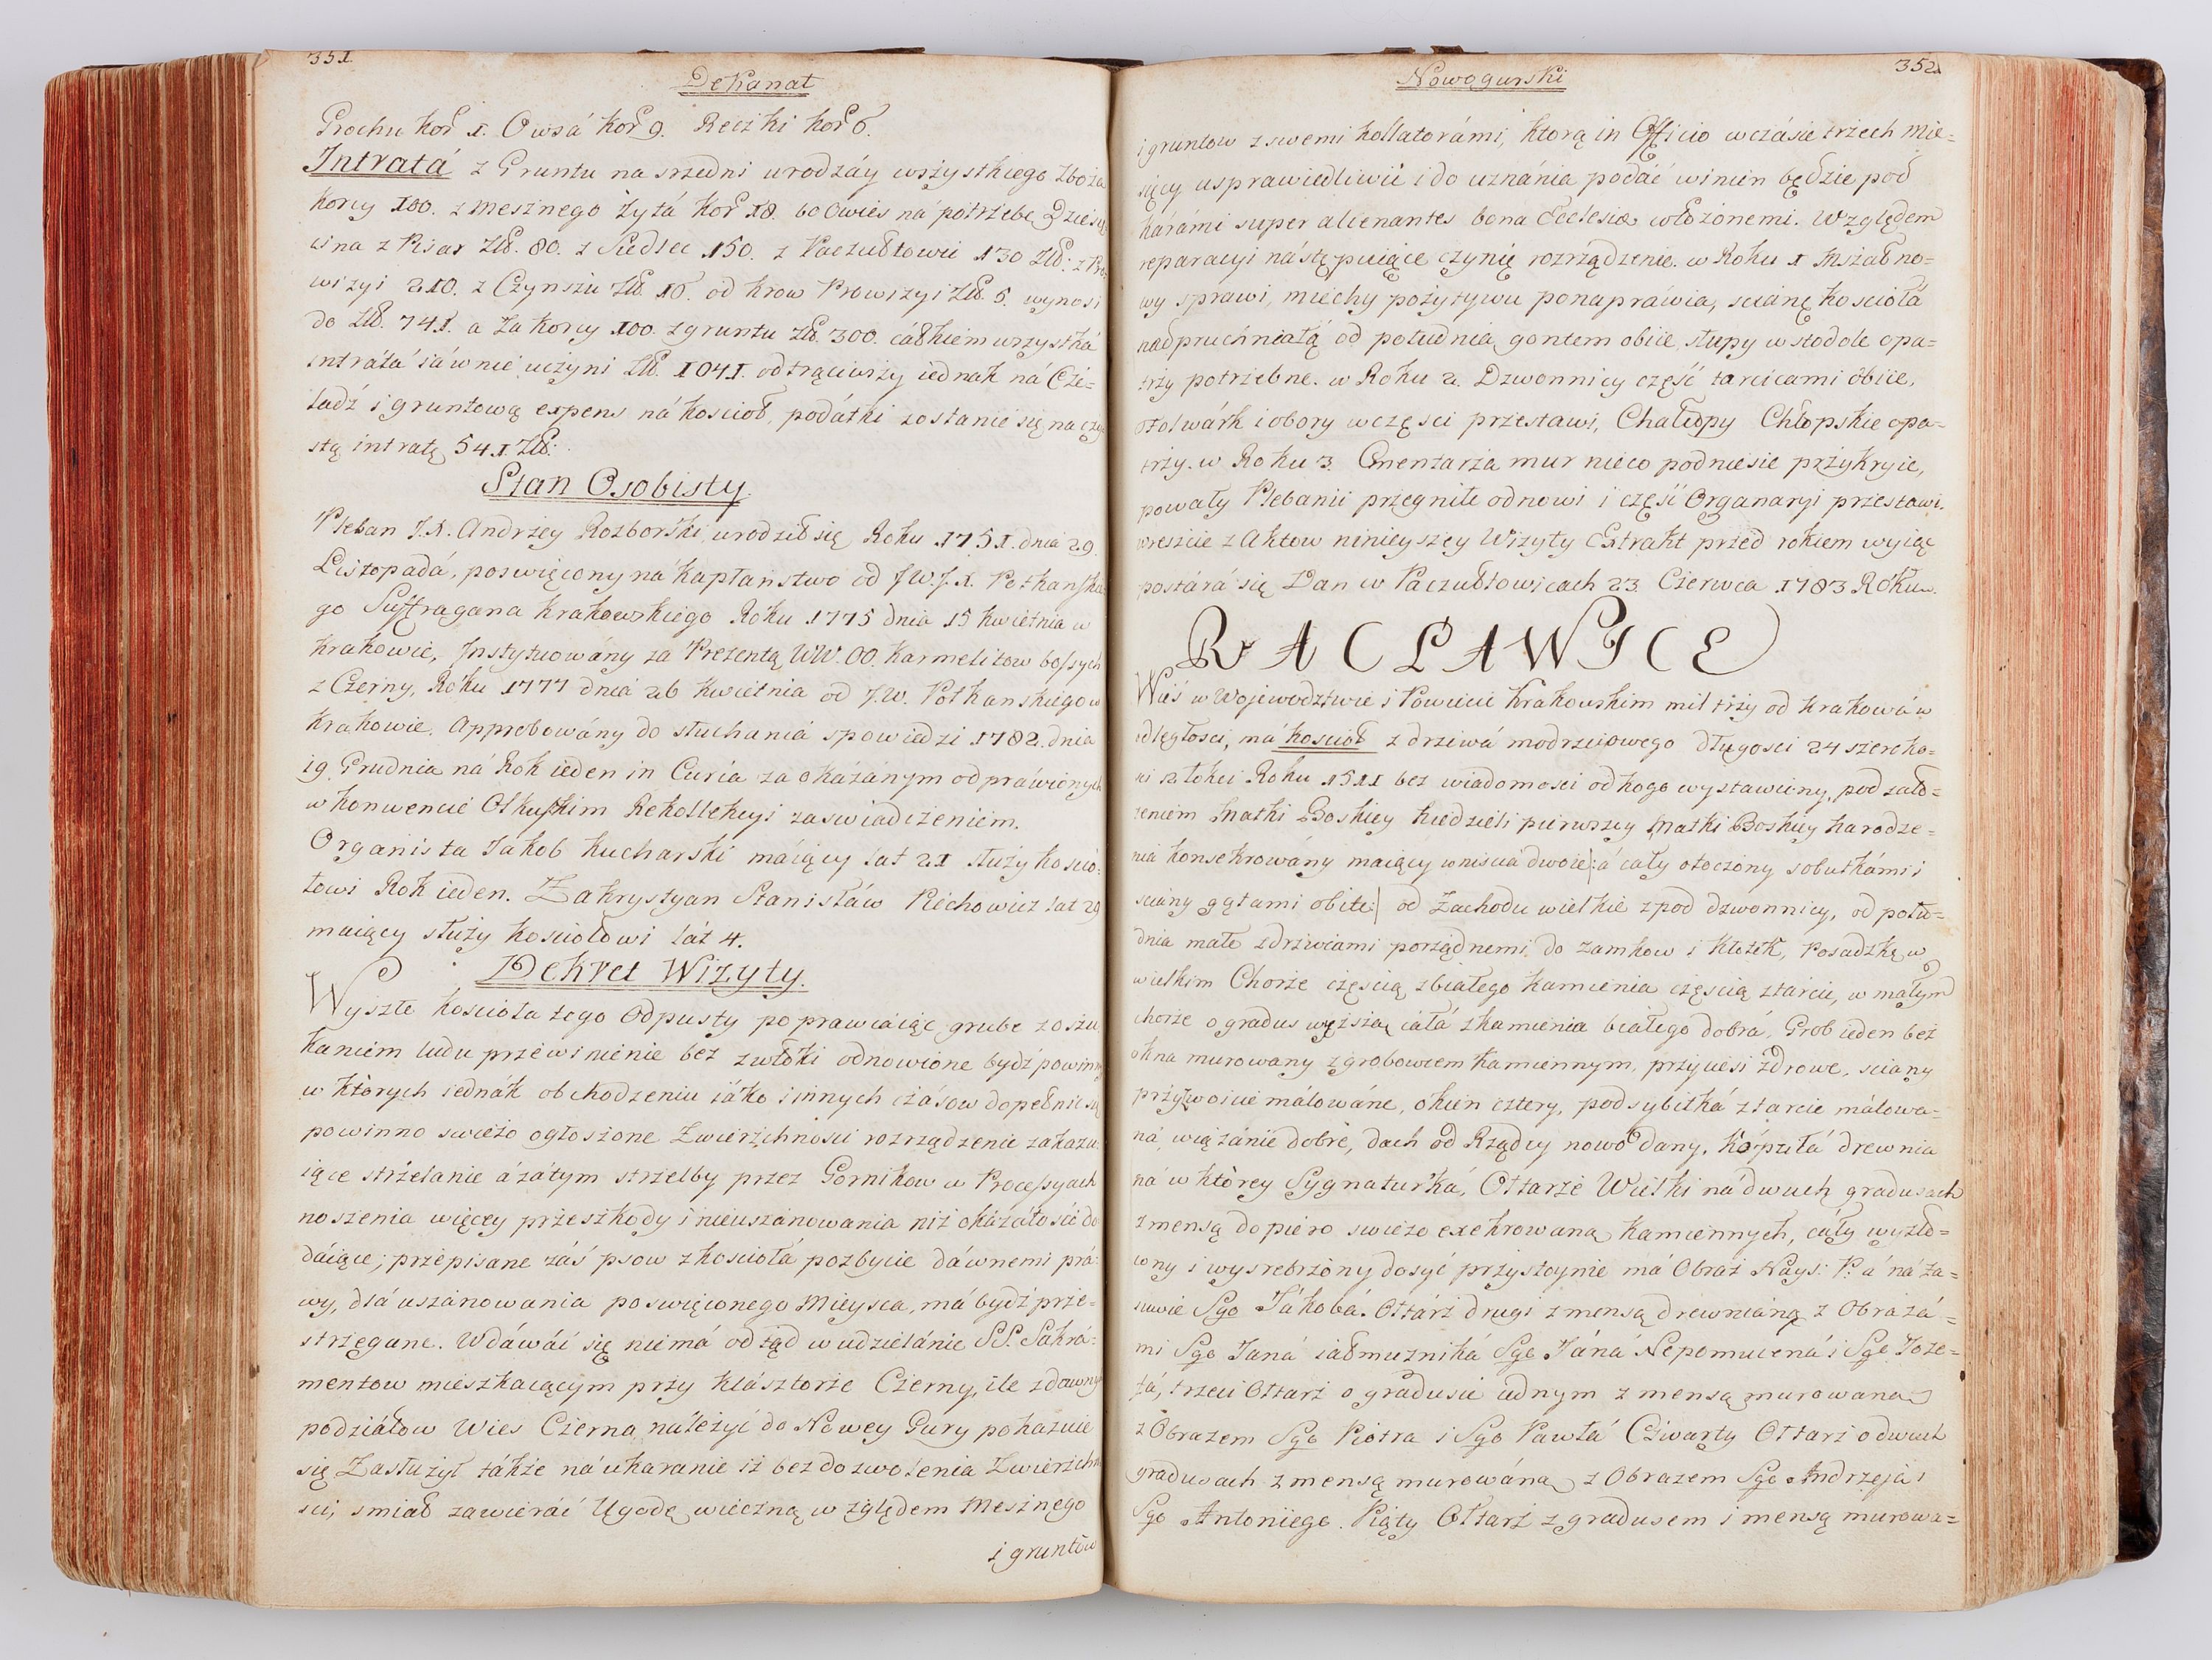 351.
Dekanat
Grochu kor 1. Owsá kor 9. Reczki kor 6.
Intratá z Gruntu na srzedni urodzáy wszystkiego zboża
korcy 100. z mesznego żytá kor 18. bo Owies ná potrzebę Dziesię
cina z Pisar Zł. 80. z Siedlec 150. z Paczułtowic 130 Zł: z Pro
wizyi 210. z Czynszu Zł. 16. od krow Prowizyi Zł. 5. wynosi
do Zł. 741. a za korcy 100. z gruntu Zł. 300. cáłkiem wszystká
intratá uczyni Zł. 1041. odtrąciwszy iednak ná Cze=
ladź i gruntową expens ná kościoł, podátki zostanie się na czy
stą intratę 541 Zł:
Stan Osobisty.
Pleban J.X. Andrzey Rozborski, urodził się Roku 1751. dnia 29.
Listopadá, poswięcony na kapłanstwo od J.W.J.X. Potkanskie
go Suffragana Krakowskiego Roku 1775 dnia 15 kwietnia w
Krakowie, Instytuowány za Prezentą WW.OO. Karmelitow bossych
z Czerny, Roku 1777 dniá 26 kwietnia od J.W. Potkanskiego w
Krakowie. Approbowány do słuchaniá spowiedzi 1782. dnia
19. Grudnia ná Rok ieden in Curia za okázánym odpráwionych
w konwencie Olkuskim Rekollekcyi zaswiadczeniem.
Organista Jakob Kucharski máiący lat 21 służy kościo=
łowi Rok ieden. Zakrystyan Stanisłáw Piechowicz lat 29
maiący służy kościołowi lát 4.
Dekret Wizyty.
Wyszłe kościoła tego Odpusty poprawuiąc grube z oszu
kaniem ludu przewinienie bez zwłoki odnowione bydź powinny
w ktòrych iednák obchodzeniu iáko i innych czásow dopełnić się
powinno swieżo ogłoszone Zwierzchności rozrządzenie zakazu
iące strzelanie á zátym strzelby przez Gornikow w Processyach
noszenia więcey przeszkody i nieuszánowania niż okázáłości do
dáiące; przepisane záś psow z kościołá pozbycie dáwnemi prá=
wy, dlá uszánowania poswięconego Mieysca, má bydź prze=
strzegane. Wdáwáć się niemá odtąd w udzielánie SS. Sakrá=
mentow mieszkaiącym przy klásztorze Czerny, ile z dawnych
podziáłow Wies Czerna náleżyć do Nowey Gury pokazuie
się Zasłużył tákże ná ukaranie iż bez dozwolenia Zwierzchno
sci, smiał zawieráć Ugodę wieczną względem Mesznego
i gruntòw
352.
Nowogurski
i gruntow z swemi kollatorámi, ktorą in Officio w czásie trzech mie=
sięcy usprawiedliwić i do uznánia podáć winien będzie pod
kárámi super alienantes bona Ecclesiæ włożonemi. Względem
reparacyi nástępuiące czynię rozrządzenie. w Roku 1 Mszał no=
wy sprawi, miechy pozytywu ponapráwia, scianę kościołá
nadpruchniałą od południa, gontem obiie, słupy w stodole opa=
trzy potrzebne. w Roku 2. Dzwonnicy część tarcicami obiie,
folwárk i obory w częsci przestawi, Chałupy Chłopskie opa=
trzy. w Roku 3. Cmentarza mur nieco podniesie przykryie,
powały Plebanii przegniłe odnowi i część Organaryi przestawi.
wreszcie z Aktow ninieyszey Wizyty Extrakt przed rokiem wyiąć
postárá się Dan w Paczułtowicach 23. Czerwca 1783 Roku.
RACŁAWICE
Wieś w Wojewodztwie i Powiecie Krakowskim mil trzy od Krakowá w
odległosci, má kościoł z drzewá modrzewowego długosci 24 szeroko=
ści 12 łokci Roku 1511 bez wiadomosci od kogo wystawiony, pod zało=
żeniem Matki Boskiey Niedzieli pierwszey Matki Boskiey Narodze=
nia konsekrowány maiący wniscia dwoie |: á cały otoczony sobotkámi i
sciány gątami obite:| od Zachodu wielkie z pod dzwonnicy, od połu=
dnia małe z drzwiami porządnemi do zamkow i kłotek, Posadzkę w
wielkim Chorze częscią z białego kamienia częscią z tarcic, w małym
chorze o gradus wyższa, całá z kamienia białego dobrá, Grob ieden bez
okna murowany z grobowcem kamiennym, przyciesi zdrowe, sciany
przyzwoicie málowáne, okien cztery, podsybitká z tarcic málowa=
ná, wiązánie dobre, dach od Rządcy nowo dany, kopułá drewnia
ná w ktòrey Sygnaturká, Ołtarze Wielki ná dwuch gradusach
z mensą dopiero swieżo exekrowaną kamiennych, cáły wyzło=
cony i wysrebrzony dosyć przystoynie má Obraz Nays: P: á ná za=
suwie Sgo Jákobá. Ołtárz drugi z mensą drewnianą z Obrazá=
mi Sgo Janá iáłmużniká Sgo Jáná Nepomucená i Sgo Joze=
fá, trzeci Ołtarz o gradusie iednym z mensą murowaną
z Obrazem Sgo Piotra i Sgo Pawłá Czwarty Ołtarz o dwuch
gradusach z mensą murowáną z Obrazem Sgo Andrzeja i
Sgo Antoniego. Piąty Ołtarz z gradusem i mensą murowa=